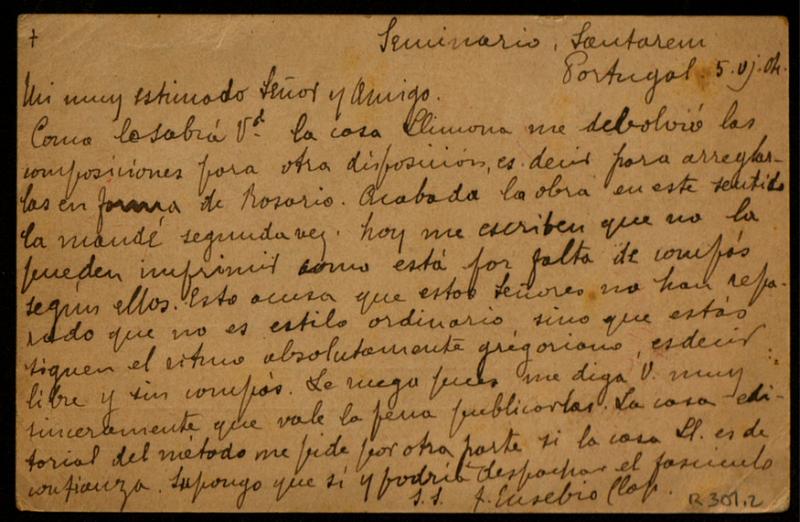 †
Seminario, Santarem
Portugal. 5.vj.04.
Mi muy estimado Señor y Amigo.
Como lo sabrá Vd. la casa Llimona me debolvió las
composiciones para otra disposición, es decir para arreglar-
las en forma de Rosario. Acabada la obra en este sentido
la mandé segunda vez. hoy me escriben que no la
pueden imprimir como está por falta de compás
según ellos. Esto acusa que estos Señores no han repa-
rado que no es estilo ordinario sino que estás
siguen el ritmo absolutamente gregoriano, es decir
libre y sin compás. Le ruego pues me diga V. muy
sinceramente que vale la pena publicarlas. La casa edi-
torial del método me pide por otra parte si la casa Ll. es de
confianza. Supongo que sí y podría despachar el fasciculo
S.S. f. Eusebio Clop.
R 301,2